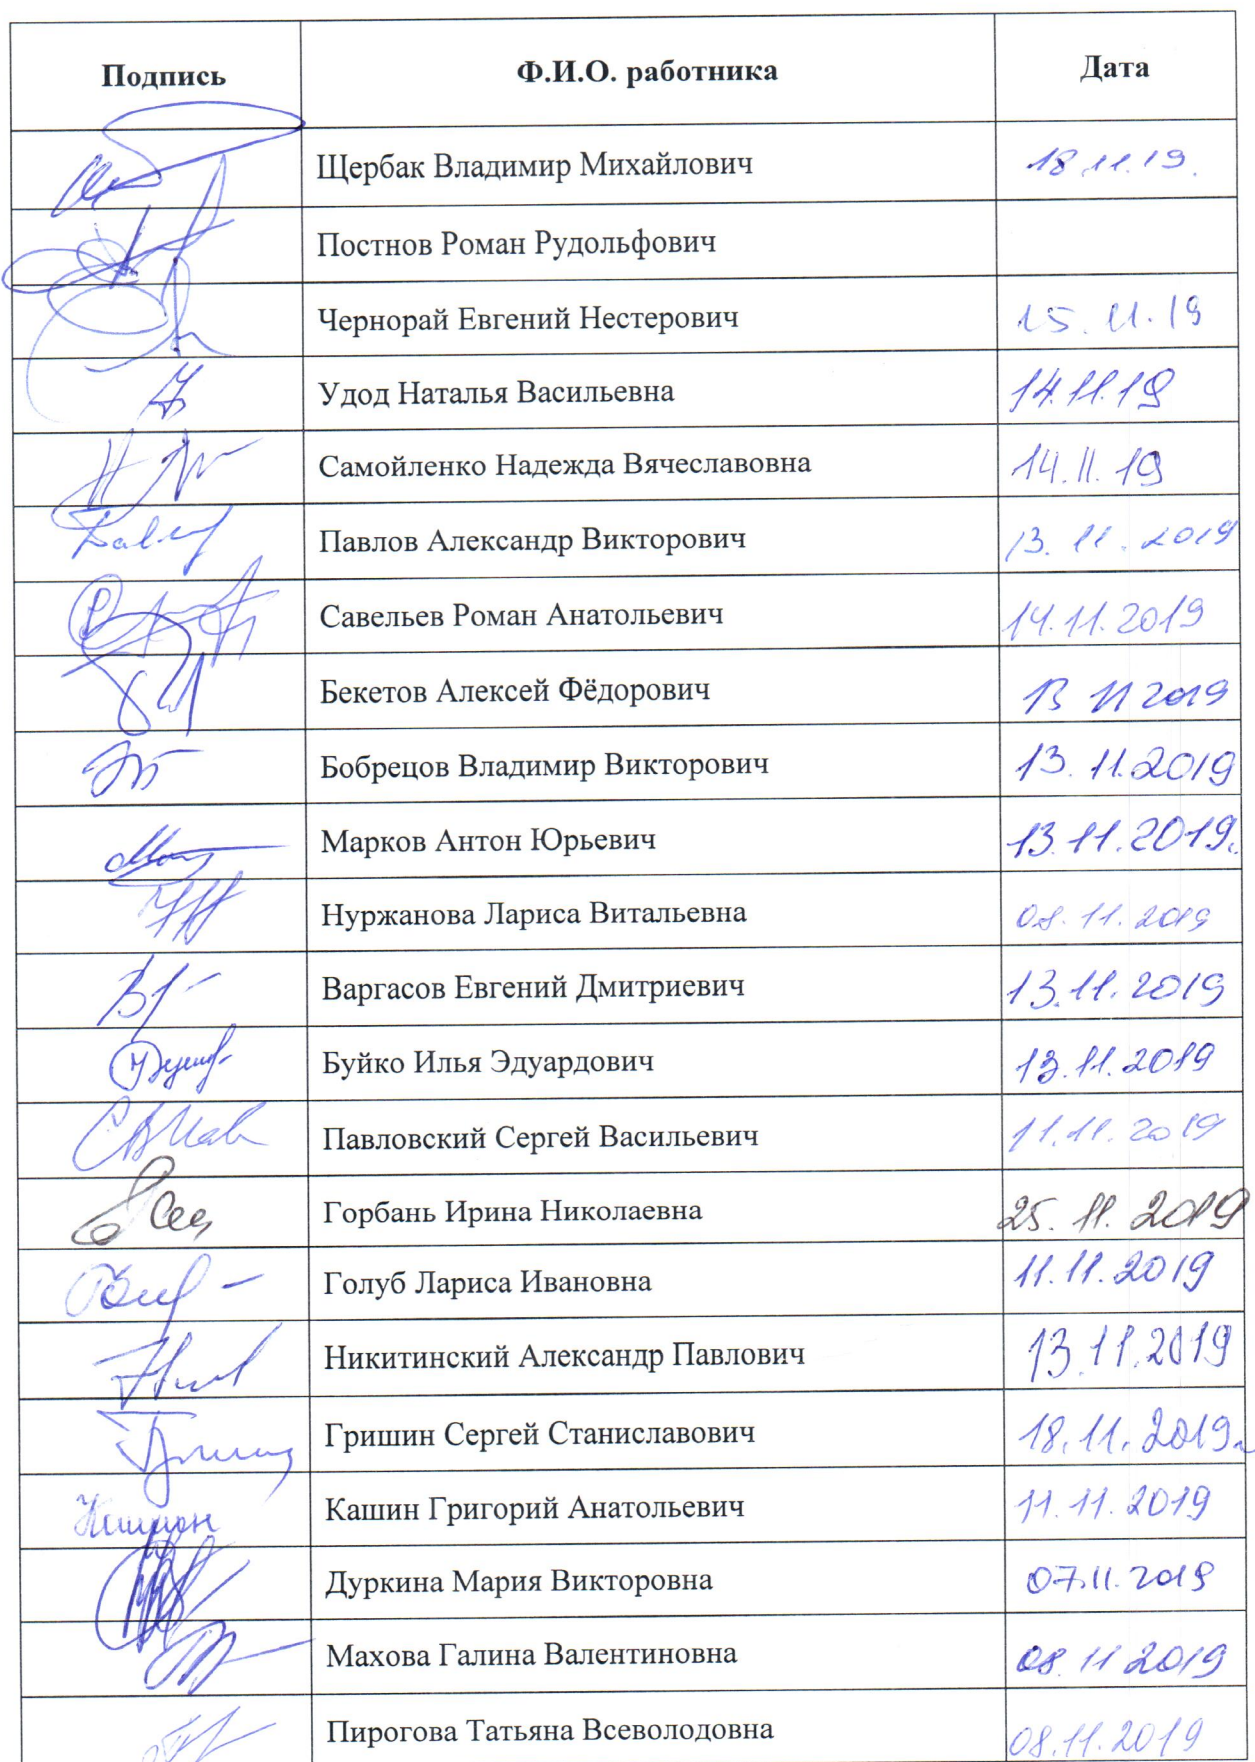 Подпись Ф.И.О. работника Дата
Щербак Владимир Михайлович 18.11.19.
Постнов Роман Рудольфович
Чернорай Евгений Нестерович 15.11.19
Удод Наталья Васильевна 14.11.19
Самойленко Надежда Вячеславовна 14.11.19
Павлов Александр Викторович 13.11.2019
Савельев Роман Анатольевич 14.11.2019
Бекетов Алексей Фёдорович 13 11 2019
Бобрецов Владимир Викторович 13.11.2019
Марков Антон Юрьевич 13.11.2019.
Нуржанова Лариса Витальевна 08.11.2019
Варгасов Евгений Дмитриевич 13.11.2019
Буйко Илья Эдуардович 13.11.2019
Павловский Сергей Васильевич 11.11.2019
Горбань Ирина Николаевна 25.11.2019
Голуб Лариса Ивановна 11.11.2019
Никитинский Александр Павлович 13.11.2019
Гришин Сергей Станиславович 18.11.2019г
Кашин Григорий Анатольевич 11.11.2019
Дуркина Мария Викторовна 07.11.2019
Махова Галина Валентиновна 08 11 2019
Пирогова Татьяна Всеволодовна 08.11.2019